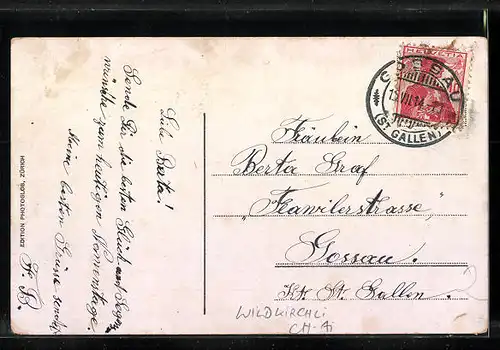 Liebe Berta!
Sende Dir die besten Glück und Segens
wünsche zum heutigen Namenstage.
Meine besten Grüsse sendet
F. B.
EDITION PHOTOGLOB, ZÜRICH
HELVETIA
GOSSAU
(ST. GALLEN)
Fräulein
Berta Graf
„Flawilerstrasse“
Gossau.
Kt. St. Gallen.
WILDKIRCHLI
CH-AI